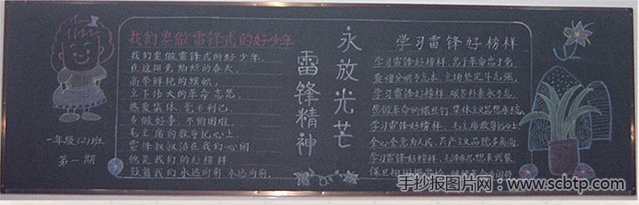 我们要做雷锋式的好少年
我们要做雷锋式的好少年，
在这阳光灿烂的春天，
高举鲜艳的旗帜，
立下伟大的革命志愿。
热爱集体，毫不利己，
专做好事，不怕困难。
毛主席的教导记心上，
雷锋叔叔活在我们心间
他是我们的好榜样
鼓舞我们永远向前，永远向前。
一年级(2)班
第一期
永放光芒
雷锋精神
学习雷锋好榜样
学习雷锋好榜样，忠于革命忠于党，
爱憎分明不忘本，立场坚定斗志强。
学习雷锋好榜样，艰苦朴素永不忘，
愿做革命的螺丝钉，集体主义思想
学习雷锋好榜样，毛主席教导记心上
全心全意为人民，共产主义品德多高尚
学习雷锋好榜样，毛泽东思想来武装，
保卫祖国
手抄报图片网：www.scbtp.com